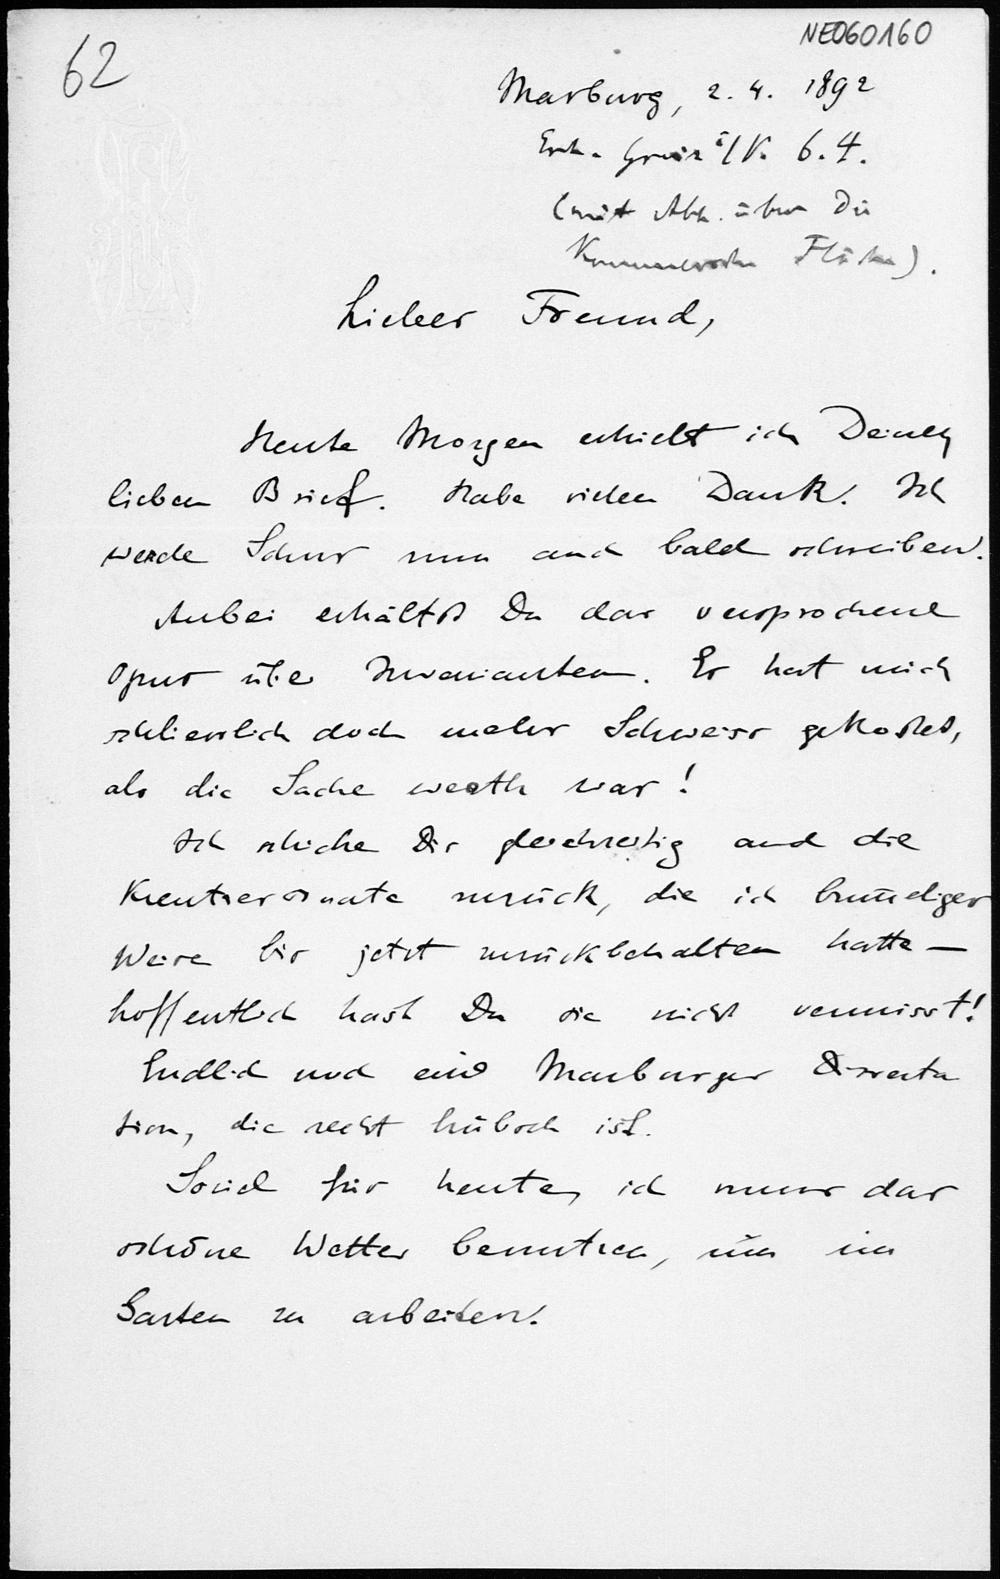 62
NE060160
Marburg, 2. 4. 1892
6. 4.
(mit Abh. über die
Kummersche Fläche).
Lieber Freund,
Heute Morgen erhielt ich Deinen
lieben Brief. Habe vielen Dank. Ich
werde Schur nun auch bald schreiben.
Anbei erhältst Du das versprochene
Opus über Invarianten. Es hat mich
schliesslich doch mehr Schweiss gekostet,
als die Sache werth war!
Ich schicke Dir gleichzeitig auch die
Kreutzersonate zurück, die ich
Weise bis jetzt zurückbehalten hatte —
hoffentlich hast Du sie nicht vermisst!
Endlich noch eine Marburger Disserta
tion, die recht hübsch ist.
Soviel für heute, ich muss das
schöne Wetter benutzen, um im
Garten zu arbeiten.